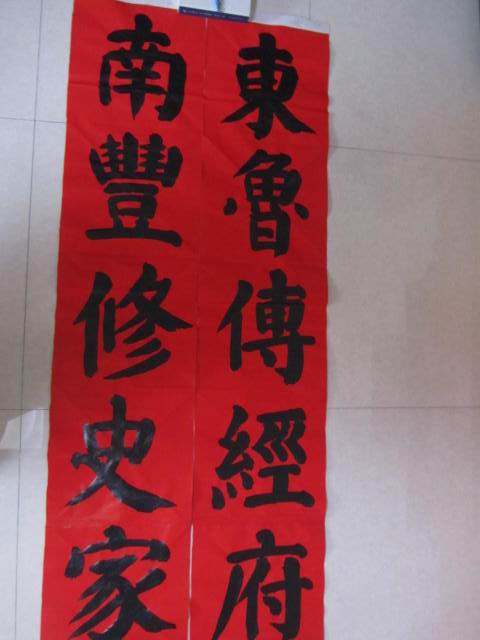 東魯傳經府
南豐修史家